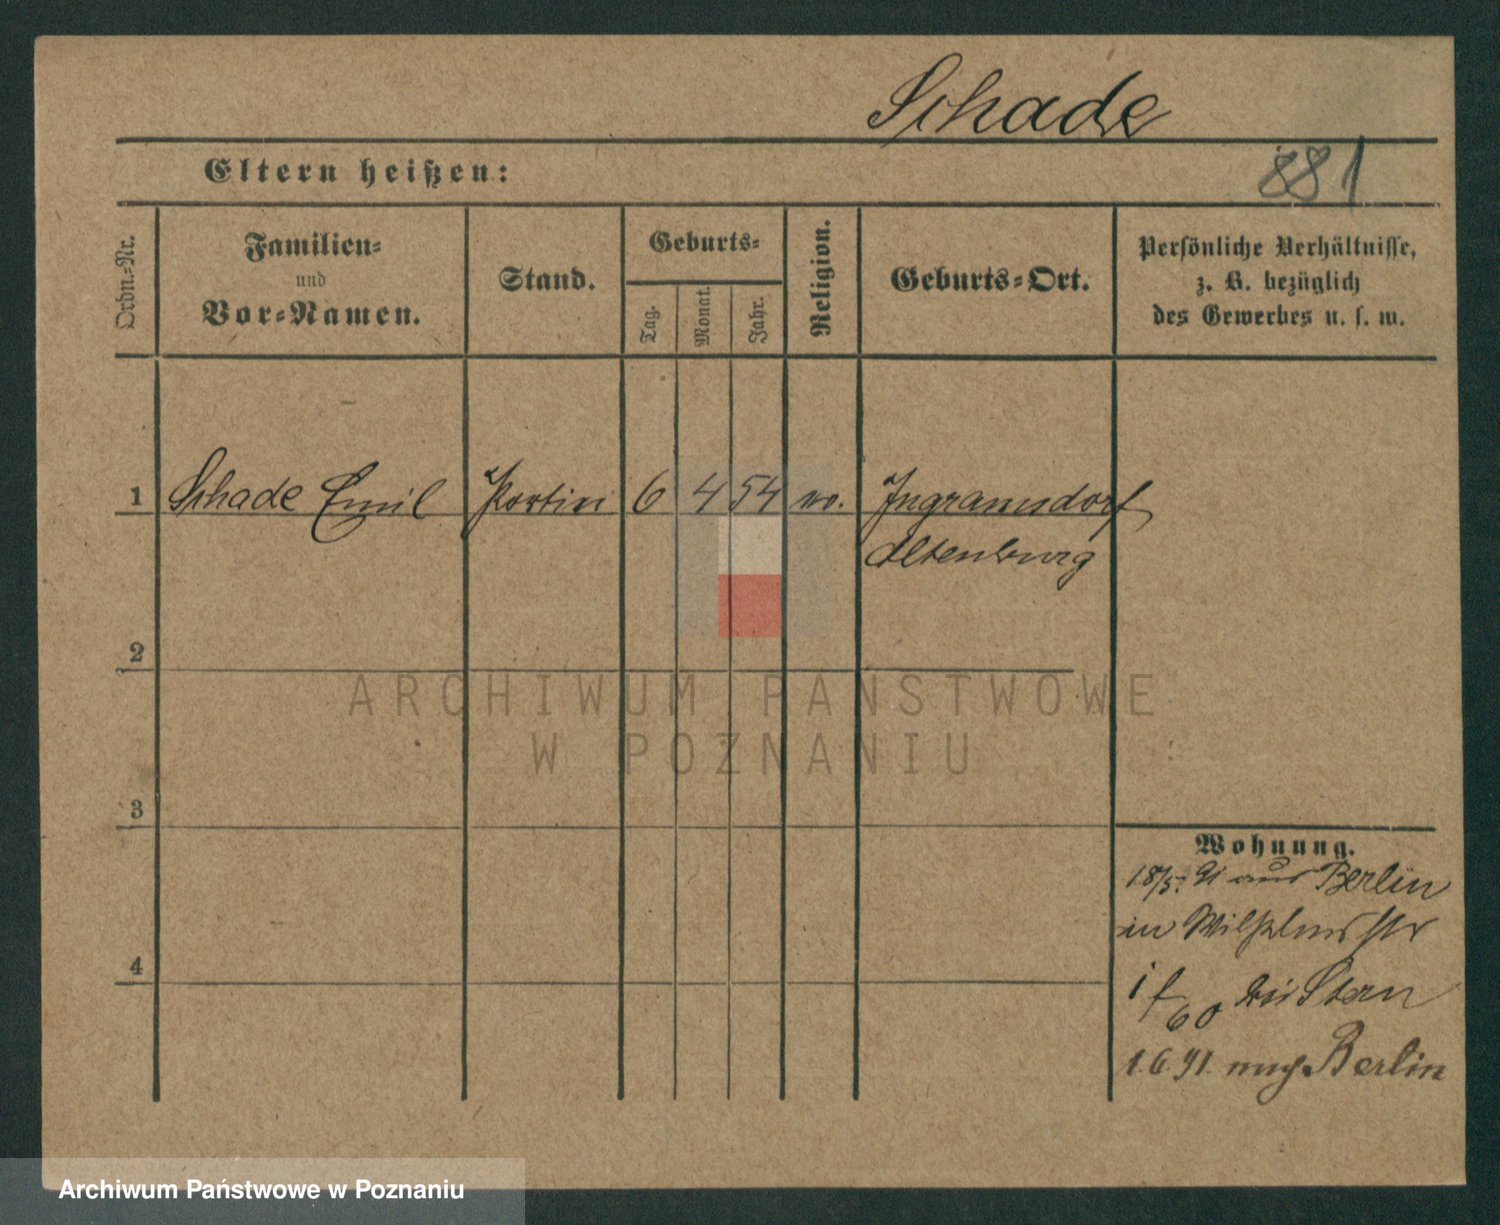 Schade
881
Eltern heißen:
Ordn.-Nr.
Familien-
und
Vor-Namen.
Stand.
Geburts-
Tag.
Monat.
Jahr.
Religion.
Geburts-Ort.
Persönliche Verhältnisse,
z. B. bezüglich
des Gewerbes u. s. w.
1 Schade Emil Portier 6 4 54 ev. Ingramsdorf
Altenburg
2
ARCHIWUM PAŃSTWOWE
W POZNANIU
3
4
Wohnung.
18/5. 91 aus Berlin
in Wilhelmstr
bei Stern
1.6.91. nach Berlin
Archiwum Państwowe w Poznaniu